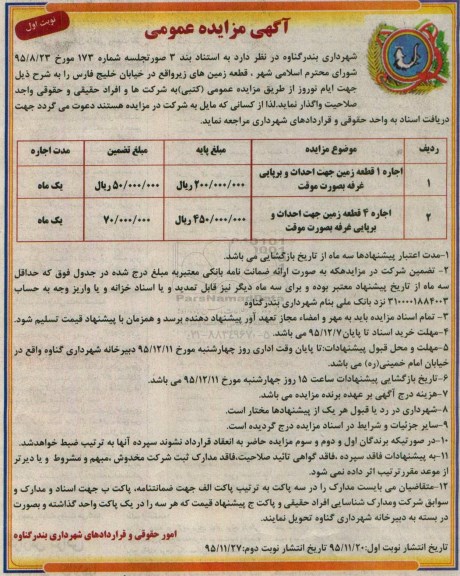 نوبت اول
آگهی مزایده عمومی
شهرداری بندرگناوه در نظر دارد به استناد بند ۳ صورتجلسه شماره ۱۷۳ مورخ ۹۵/۸/۲۳
شورای محترم اسلامی شهر ، قطعه زمین های زیرواقع در خیابان خلیج فارس را به شرح ذیل
جهت ایام نوروز از طریق مزایده عمومی (کتبی)به شرکت ها و افراد حقیقی و حقوقی واجد
صلاحیت واگذار نماید.لذا از کسانی که مایل به شرکت در مزایده هستند دعوت می گردد جهت
دریافت اسناد به واحد حقوقی و قراردادهای شهرداری مراجعه نماید.
ردیف موضوع مزایده مبلغ پایه مبلغ تضمین مدت اجاره
۱ اجاره ۱ قطعه زمین جهت احداث و برپایی غرفه بصورت موقت ۲۰۰/۰۰۰/۰۰۰ ریال ۵۰/۰۰۰/۰۰۰ ریال یک ماه
۲ اجاره ۴ قطعه زمین جهت احداث و برپایی غرفه بصورت موقت ۴۵۰/۰۰۰/۰۰۰ ریال ۷۰/۰۰۰/۰۰۰ یک ماه
۱-مدت اعتبار پیشنهادها سه ماه از تاریخ بازگشایی می باشد.
۲- تضمین شرکت در مزایدهکه به صورت ارائه ضمانت نامه بانکی معتبربه مبلغ درج شده در جدول فوق که حداقل
سه ماه از تاریخ پیشنهاد معتبر بوده و برای سه ماه دیگر نیز قابل تمدید و یا اسناد خزانه و یا واریز وجه به حساب
۳۱۰۰۰۰۱۸۸۴۰۰۳ نزد بانک ملی بنام شهرداری بندرگناوه
۳- تمام اسناد مزایده باید به مهر و امضاء مجاز تعهد آور پیشنهاد دهنده برسد و همزمان با پیشنهاد قیمت تسلیم شود.
۴-مهلت خرید اسناد تا پایان۹۵/۱۲/۷ می باشد.
۵-مهلت و محل قبول پیشنهادات:تا پایان وقت اداری روز چهارشنبه مورخ ۹۵/۱۲/۱۱ دبیرخانه شهرداری گناوه واقع در
خیابان امام خمینی(ره) می باشد.
۶-تاریخ بازگشایی پیشنهادات ساعت ۱۵ روز چهارشنبه مورخ ۹۵/۱۲/۱۱ می باشد.
۷-هزینه درج آگهی بر عهده برنده مزایده می باشد.
۸-شهرداری در رد یا قبول هر یک از پیشنهادها مختار است.
۹-سایر جزئیات و شرایط در اسناد مزایده درج گردیده است.
۱۰-در صورتیکه برندگان اول و دوم و سوم مزایده حاضر به انعقاد قرارداد نشوند سپرده آنها به ترتیب ضبط خواهدشد.
۱۱-به پیشنهادات فاقد سپرده ،فاقد گواهی تائید صلاحیت،فاقد مدارک ثبت شرکت مخدوش ،مبهم و مشروط و یا دیرتر
از موعد مقررترتیب اثر داده نمی شود.
۱۲-متقاضیان می بایست مدارک را در سه پاکت به ترتیب پاکت الف جهت ضمانتنامه، پاکت ب جهت اسناد و مدارک و
سوابق شرکت ومدارک شناسایی افراد حقیقی و پاکت ج پیشنهاد قیمت که هر سه را در یک پاکت واحد گذاشته و بصورت
در بسته به دبیرخانه شهرداری گناوه تحویل نمایند.
امور حقوقی و قراردادهای شهرداری بندرگناوه
تاریخ انتشار نوبت اول:۹۵/۱۱/۲۰ تاریخ انتشار نوبت دوم:۹۵/۱۱/۲۷